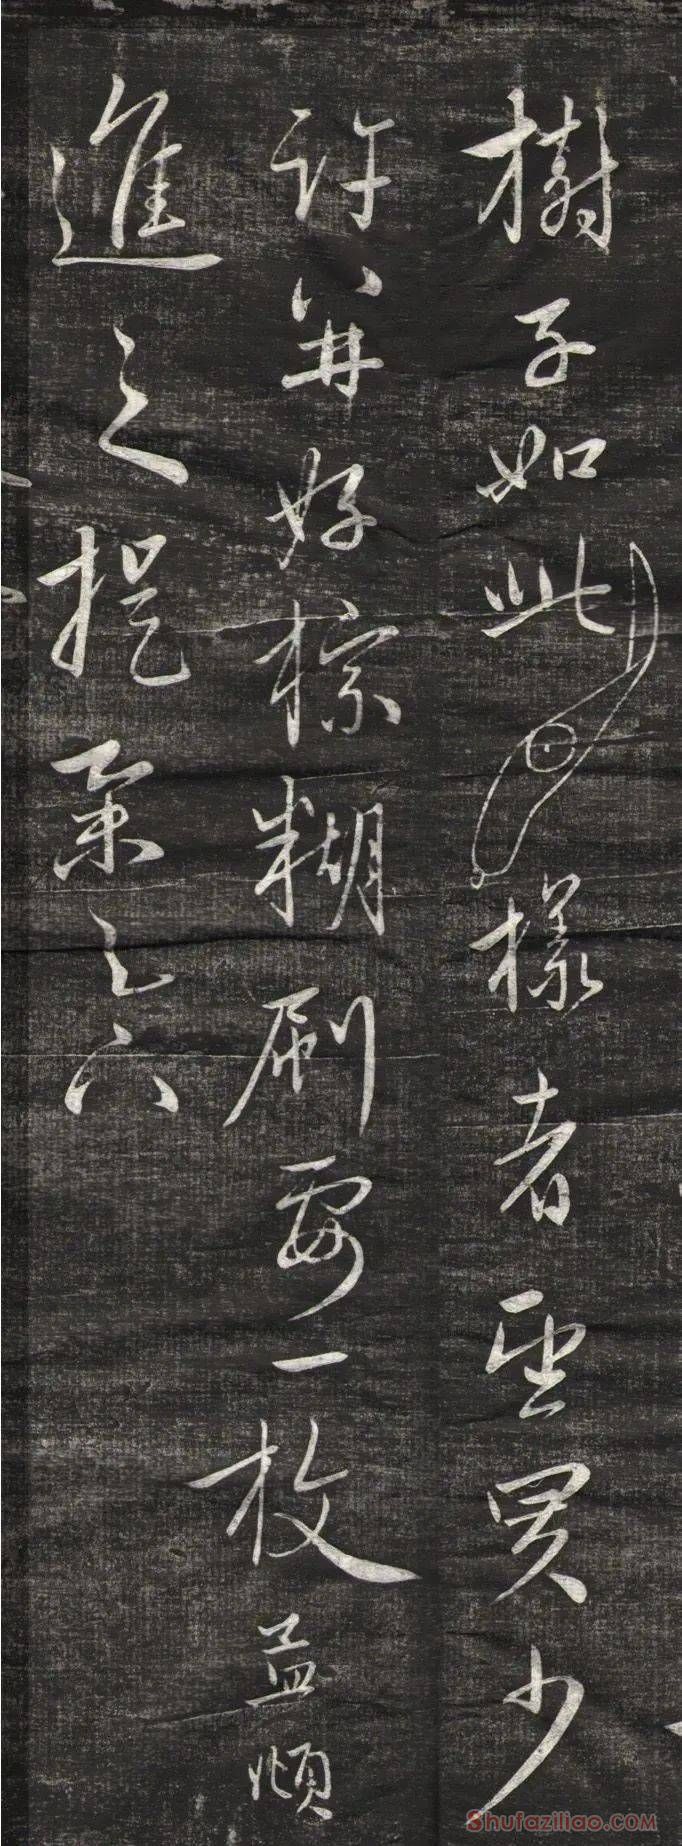 樹子如此樣者望買少
許并好棕糊刷要一枚孟頫
進之提舉
Shufaziliao.COM